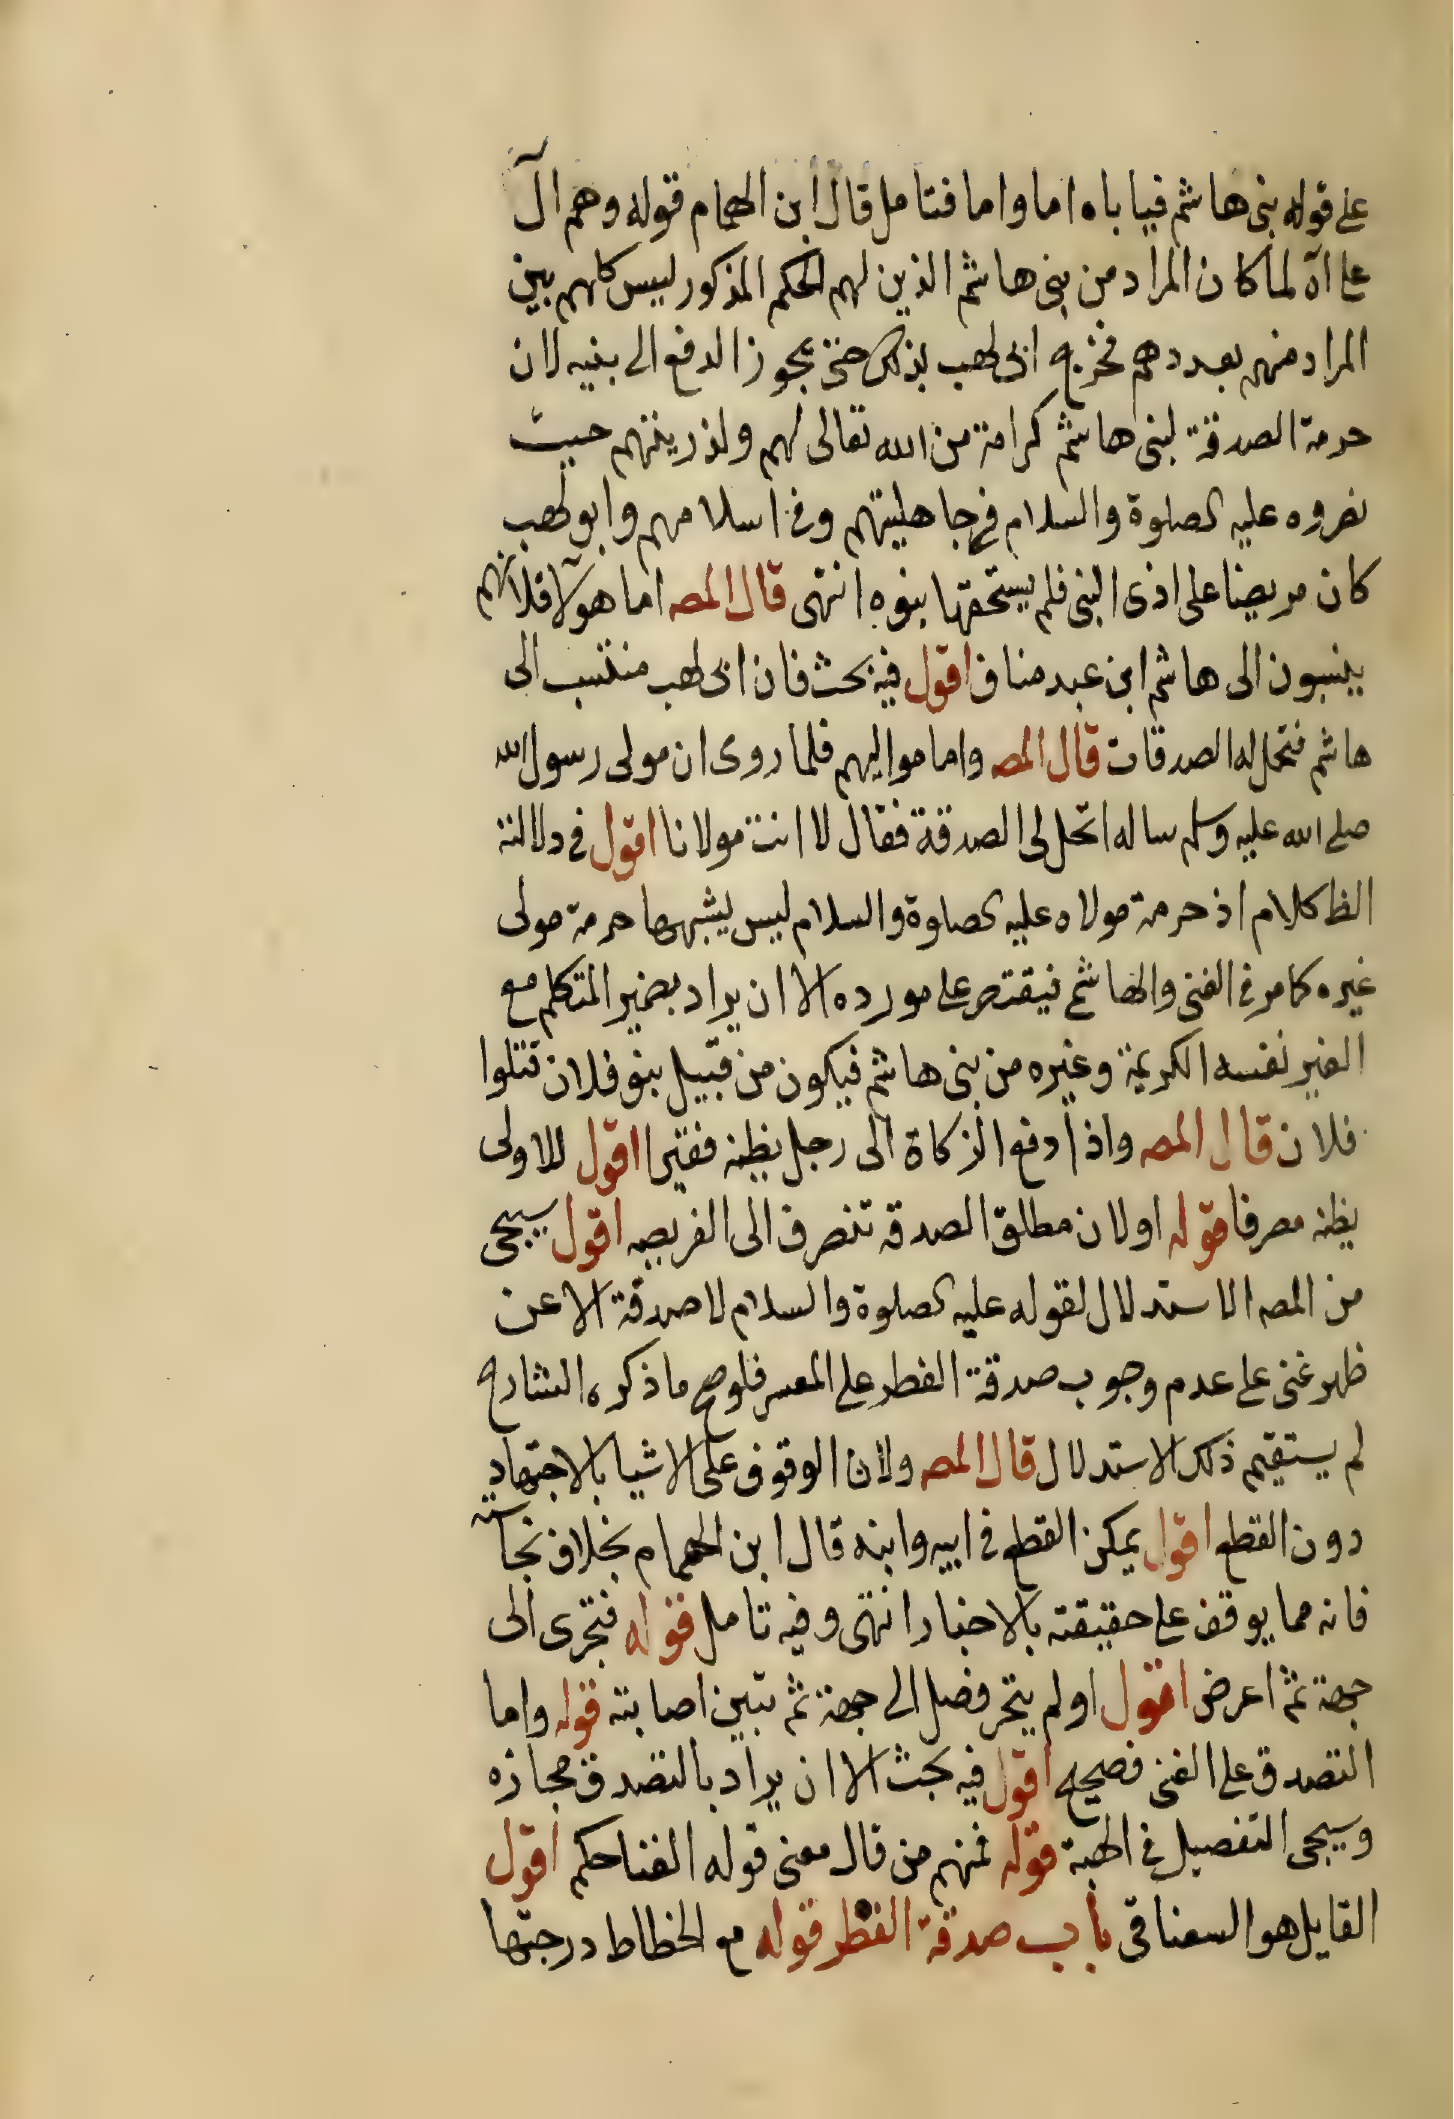 على قوله بنى هاشم فيا باه اما واما فتامل قال ابن الهمام قوله وهم آل
على اه لما كان المراد من بنى هاشم الذين لهم الحكم المذكور ليس كلهم بين
المراد منهم بعددهم فخرج ابى لهب بذلك حتى يجوز الدفع الى بنيه لان
حرمة الصدقة لبنى هاشم كرامة من الله تعالى لهم ولذريتهم حيث
نصروه عليه الصلوة والسلام فى جاهليتهم وفى اسلامهم وابو لهب
كان مريضا على اذى النبى فلم يستحقها بنوه انتهى قال المصه اما هولآ فلانهم
ينسبون الى هاشم ابن عبد مناف اقول فيه بحث فان ابى لهب منتسب الى
هاشم فتحل له الصدقات قال المصه واما مواليهم فلما روى ان مولى رسول الله
صلى الله عليه وسلم ساله اتحل لى الصدقة فقال لا انت مولانا اقول فى دلالته
الظ كلام اذ حرمة مولاه عليه الصلوة والسلام ليس يشبهها حرمة مولى
غيره كما مر فى الغنى والهاشم فيقتصر على مورده الا ان يراد بضمير المتكلم مع
الغير نفسه الكريمة وغيره من بنى هاشم فيكون من قبيل بنو فلان قتلوا
فلان قال المصه واذا دفع الزكاة الى رجل يظنه فقيرا اقول للاولى
يظنه مصرفا قوله اولان مطلق الصدقه تنصرف الى الفريضه اقول سيجى
من المصه الاستدلال لقوله عليه الصلوة والسلام لا صدقة الا عن
ظهر غنى على عدم وجوب صدقة الفطر على المعسر فلو صح ما ذكره الشارح
لم يستقيم ذلك الاستدلال قال المصه ولان الوقوف على الاشيا بالاجتهاد
دون القطع اقول يمكن القطع فى ابيه وابنه قال ابن الهمام بخلاف نجاسته
فانه مما يوقف على حقيقته بالاخبار انتهى وفيه تامل قوله فتحرى الى
جهة ثم اعرض اقول او لم يتحر فصل الى جهة ثم تبين اصابته قوله واما
التصدق على الغنى فصحيح اقول فيه بحث الا ان يراد بالتصدق مجازه
وسيجى التفصيل فى الهبة قوله فمنهم من قال معنى قوله الغنا حكم اقول
القايل هو السغناقى باب صدقة الفطر قوله مع انحطاط درجتها